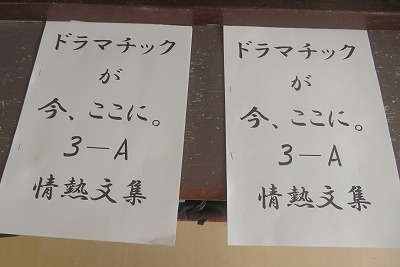 ドラマチック
が
今、ここに。
3―A
情熱文集
ドラマチック
が
今、ここに。
3―A
情熱文集